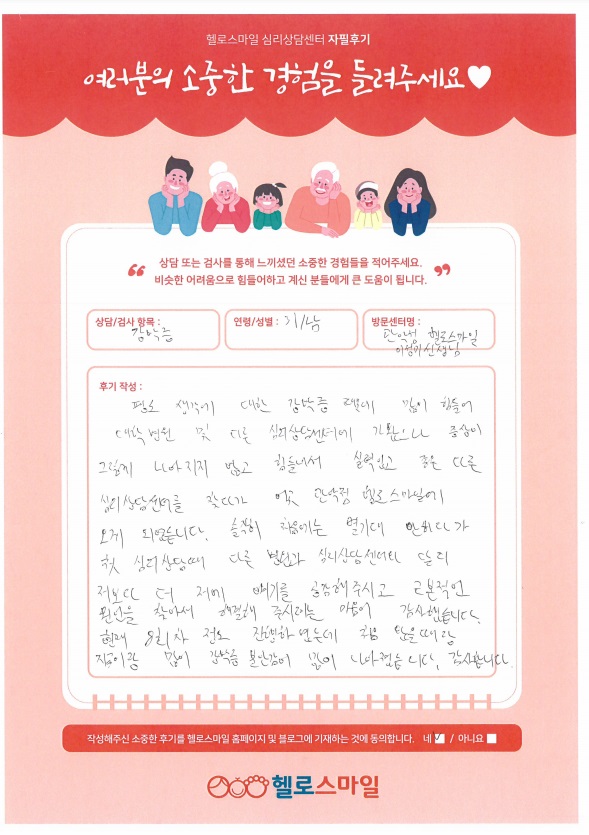 헬로스마일 심리상담센터 자필후기
여러분의 소중한 경험을 들려주세요♥
“ 상담 또는 검사를 통해 느끼셨던 소중한 경험들을 적어주세요.
비슷한 어려움으로 힘들어하고 계신 분들에게 큰 도움이 됩니다. ”
상담/검사 항목 : 강박증
연령/성별 : 31/남
방문센터명 : 관악점 헬로스마일
선생님
후기 작성 :
평소 생각에 대한 강박증 때문에 많이 힘들어
대학병원 및 다른 심리상담센터에 가봤으나 증상이
그렇게 나아지지 않고 힘들어서 실력있고 좋은 다른
심리상담센터를 찾다가 이곳 관악점 헬로스마일에
오게 되었습니다. 솔직히 처음에는 별기대 안하다가
첫 심리상담때 다른 병원과 심리상담센터와 달리
저보다 더 저에 얘기를 공감해주시고 근본적인
원인을 찾아서 해결해 주시려는 마음이 감사했습니다.
현재 8회차 정도 진행하였는데 처음 받을때랑
지금이랑 많이 강박증 불안감이 많이 나아졌습니다. 감사합니다.
작성해주신 소중한 후기를 헬로스마일 홈페이지 및 블로그에 기재하는 것에 동의합니다. 네 ✓ / 아니요
헬로스마일